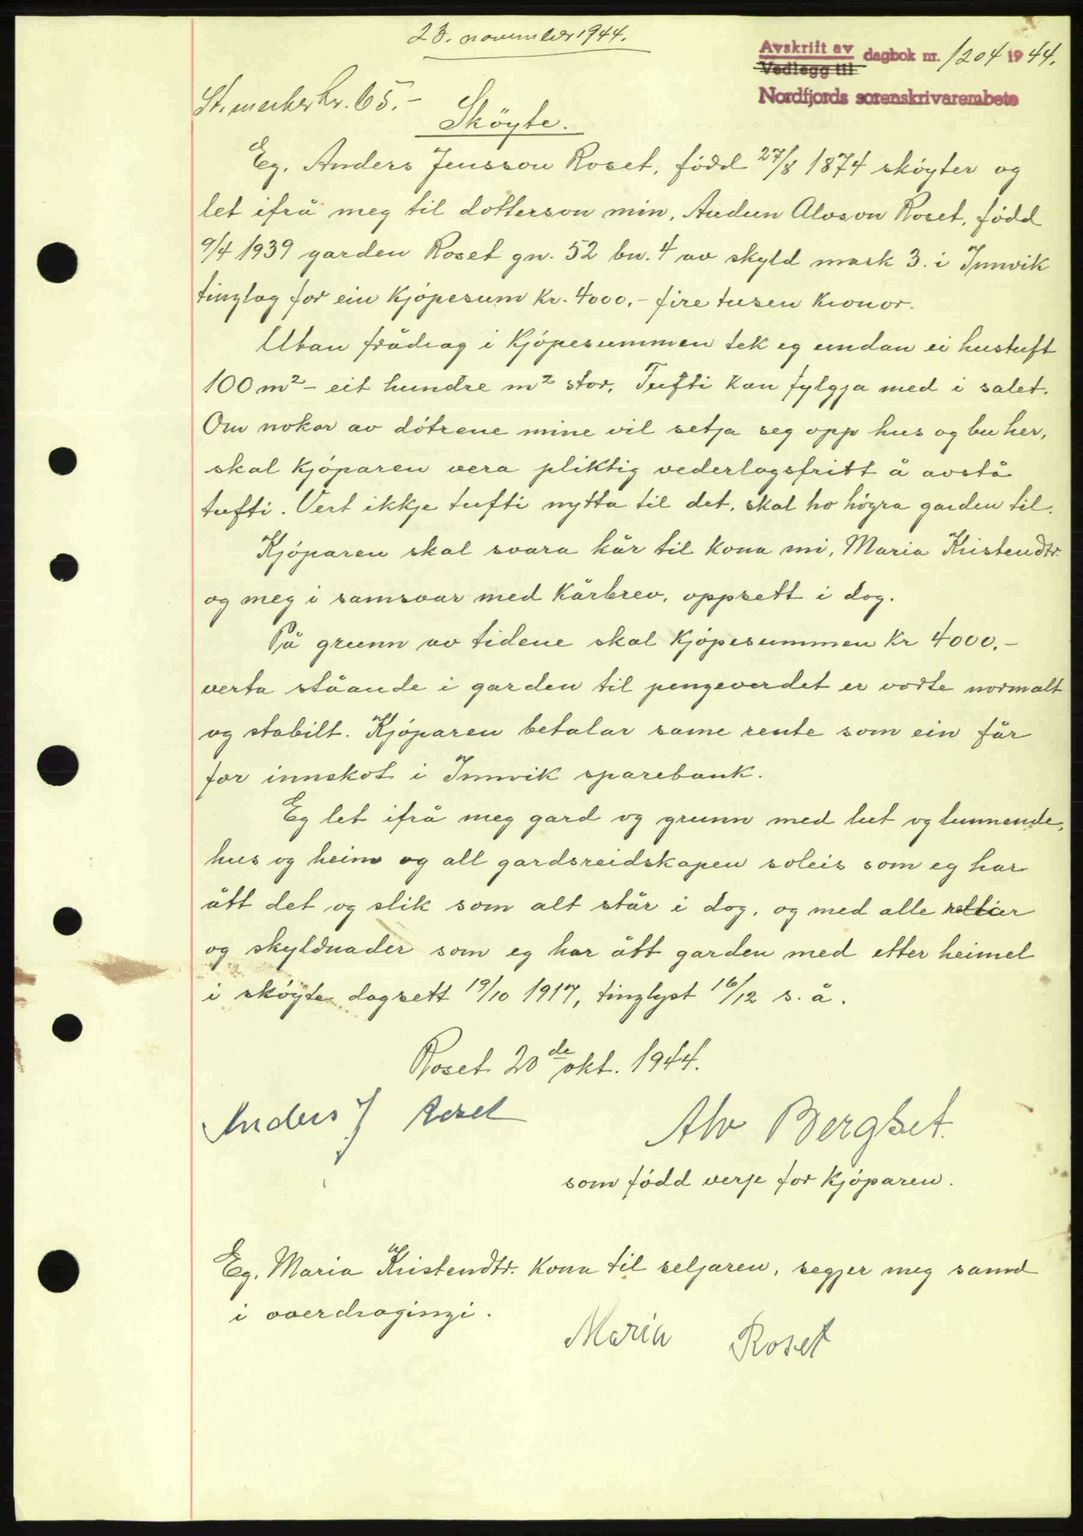 23. november 1944.
Avskrift av
Vedlegg til
dagbok nr. 1204 1944.
Nordfjords sorenskrivarembete
St.merker kr. 65.-
Skøyte.
Eg, Anders Jensson Roset, fødd 27/8 1874 skøyter og
let ifrå meg til dotterson min, Audun Alvson Roset, fødd
9/4 1939 garden Roset gn. 52 bn. 4 av skyld mark 3. i Innvik
tinglag for ein kjøpesum kr. 4000.- fire tusen kronor.
Utan frådrag i kjøpesummen tek eg undan ei hustuft
100 m² - eit hundre m² stor. Tufti kan fylgja med i salet.
Om nokor av døtrene mine vil setja seg opp hus og bu her,
skal kjøparen vera pliktig vederlagsfritt å avstå
tufti. Vert ikkje tufti nytta til det, skal ho høyra garden til.
Kjøparen skal svara kår til kona mi, Maria Kristendtr.
og meg i samsvar med kårbrev, oppsett i dag.
På grunn av tidene skal kjøpesummen kr 4000.-
verta ståande i garden til pengeverdet er vorte normalt
og stabilt. Kjøparen betalar same rente som ein får
for innskot i Innvik sparebank.
Eg let ifrå meg gard og grunn med lut og lunnende,
hus og heim og all gardsreidskapen soleis som eg har
ått det og slik som alt står i dag, og med alle rettier
og skyldnader som eg har ått garden med etter heimel
i skøyte dagsett 19/10 1917, tinglyst 16/12 s. å.
Roset 20de okt. 1944.
Anders J Roset
Alv Bergset.
som fødd verje for kjøparen.
Eg, Maria Kristendtr. kona til seljaren, segjer meg samd
i overdragingi.
Maria Roset